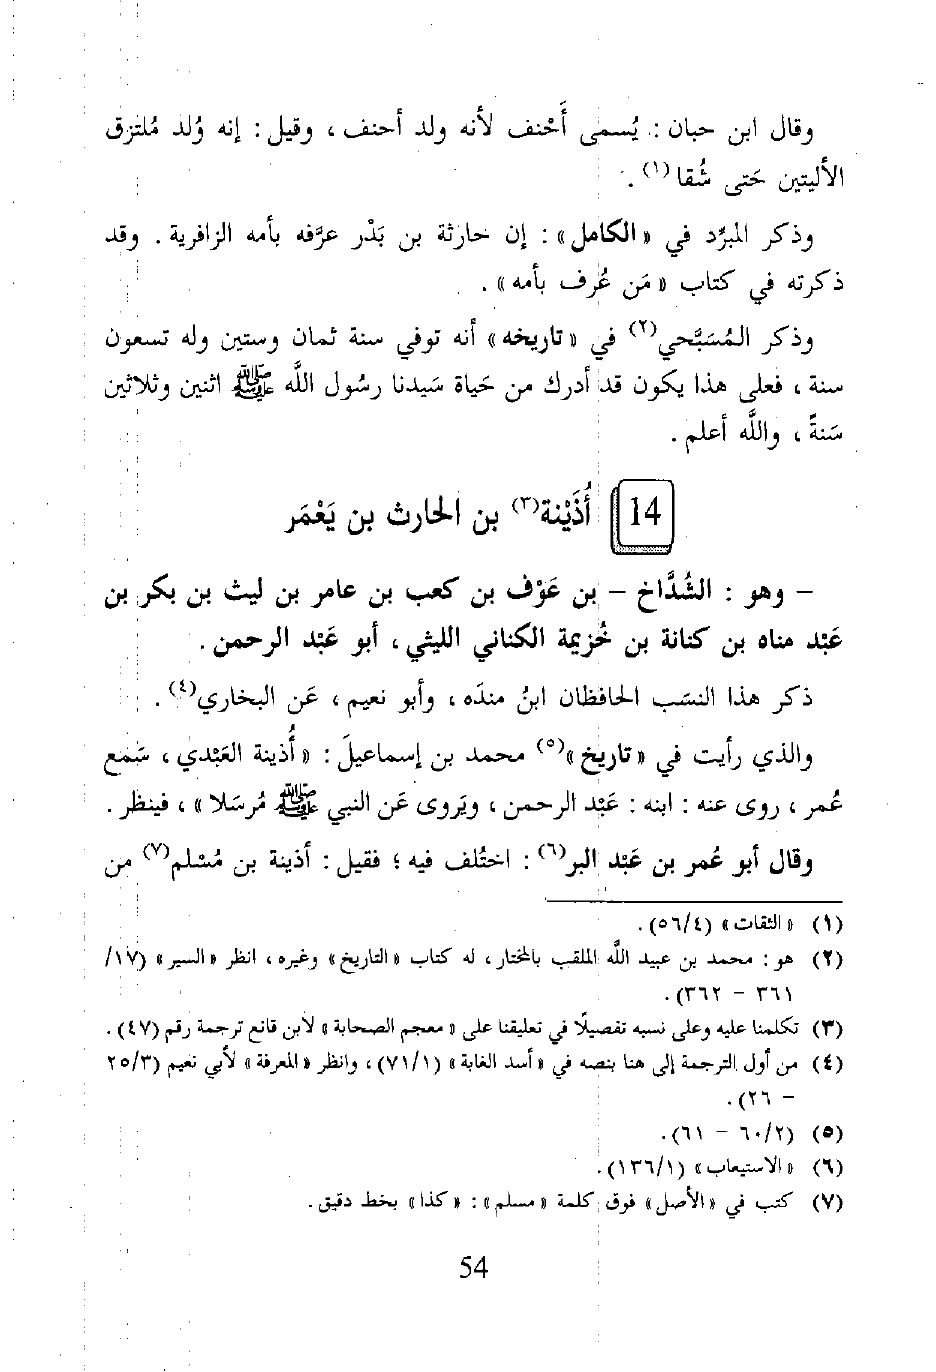 وقال ابن حبان : يُسمى أَحْنف لأنه ولد أحنف ، وقيل : إنه وُلد مُلتزق
الأليتين حَتى شُقا(١) .
وذكر المبرِّد في « الكامل » : إن حارثة بن بَدْر عرَّفه بأمه الزافرية . وقد
ذكرته في كتاب « مَن عُرف بأمه » .
وذكر المُسَبِّحي(٢) في « تاريخه » أنه توفي سنة ثمان وستين وله تسعون
سنة ، فعلى هذا يكون قد أدرك من حَياة سَيدنا رسُول اللَّه ﷺ اثنين وثلاثين
سَنةً ، واللَّه أعلم .
14 أُذَيْنة(٣) بن الحارث بن يَعْمَر
– وهو : الشُدَّاخ – بن عَوْف بن كعب بن عامر بن ليث بن بكر بن
عَبْد مناه بن كنانة بن خُزيمة الكناني الليثي ، أبو عَبْد الرحمن .
ذكر هذا النسَب الحافظان ابنُ مندَه ، وأبو نعيم ، عَن البخاري(٤) .
والذي رأيت في « تاريخ »(٥) محمد بن إسماعيلَ : « أُذينة العَبْدي ، سَمع
عُمر ، روى عنه : ابنه : عَبْد الرحمن ، ويَروى عَن النبي ﷺ مُرسَلا » ، فينظر .
وقال أبو عُمر بن عَبْد البر(٦) : اختُلف فيه ؛ فقيل : أذينة بن مُسْلم(٧) من
(١) « الثقات » (٥٦/٤) .
(٢) هو : محمد بن عبيد اللَّه الملقب بالمختار ، له كتاب « التاريخ » وغيره ، انظر « السير » (١٧/
٣٦١ – ٣٦٢) .
(٣) تكلمنا عليه وعلى نسبه تفصيلًا في تعليقنا على « معجم الصحابة » لابن قانع ترجمة رقم (٤٧) .
(٤) من أول الترجمة إلى هنا بنصه في « أسد الغابة » (٧١/١) ، وانظر « المعرفة » لأبي نعيم (٢٥/٣
– ٢٦) .
(٥) (٦٠/٢ – ٦١) .
(٦) « الاستيعاب » (١٣٦/١) .
(٧) كتب في « الأصل » فوق كلمة « مسلم » : « كذا » بخط دقيق .
54